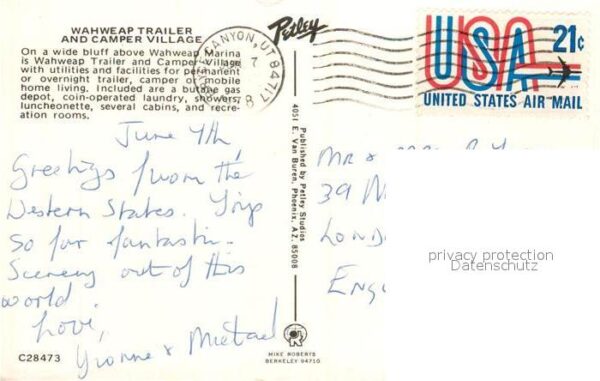 WAHWEAP TRAILER
AND CAMPER VILLAGE
On a wide bluff above Wahweap Marina
is Wahweap Trailer and Camper Village
with utilities and facilities for permanent
or overnight trailer, camper or mobile
home living. Included are a butane gas
depot, coin-operated laundry, showers,
luncheonette, several cabins, and recre-
ation rooms.
June 7th,
Greetings from the
Western States. Trip
so far fantastic.
Scenery out of this
world.
Love,
Yvonne & Michael
C28473
Petley
CANYON, UT 84717
7
Published by Petley Studios
4051 E. Van Buren, Phoenix, AZ. 85008
MIKE ROBERTS
BERKELEY 94710
USA 21c
UNITED STATES AIR MAIL
MR &
39
LOND
ENGL
privacy protection
Datenschutz